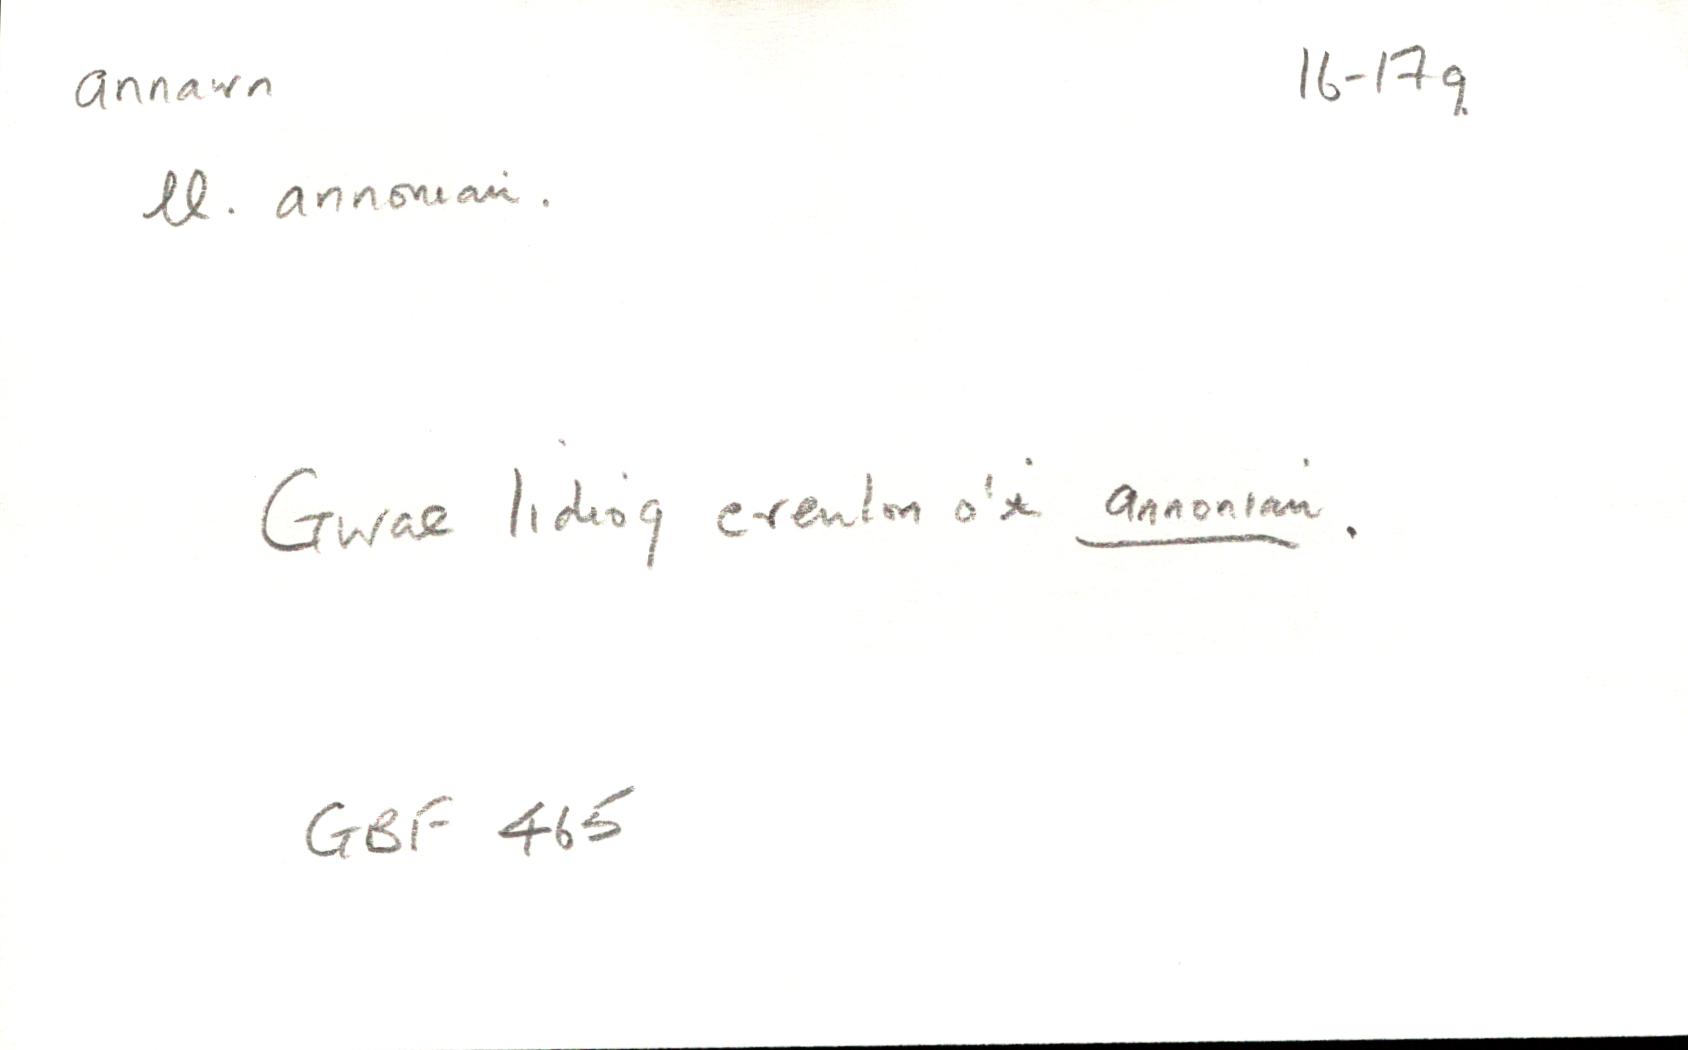 annawn
16-17g.
ll. annoniau.
Gwae lidiog creulon o'i annoniau.
GBF 465